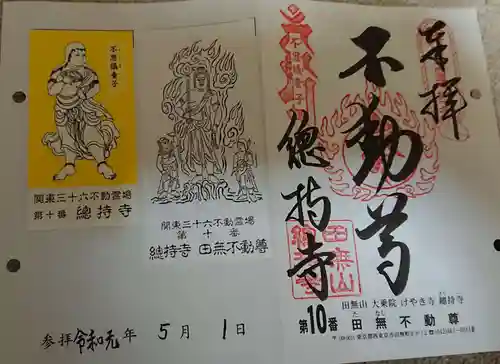 不思議童子
関東三十六不動霊場
第十番 總持寺
関東三十六不動霊場
第十番
總持寺 田無不動尊
参拝 令和元年 5月 1日
奉拝
不動尊
不思議童子
總持寺
田無山
總持寺
田無山 大乗院 けやき寺 總持寺
第10番 田無不動尊